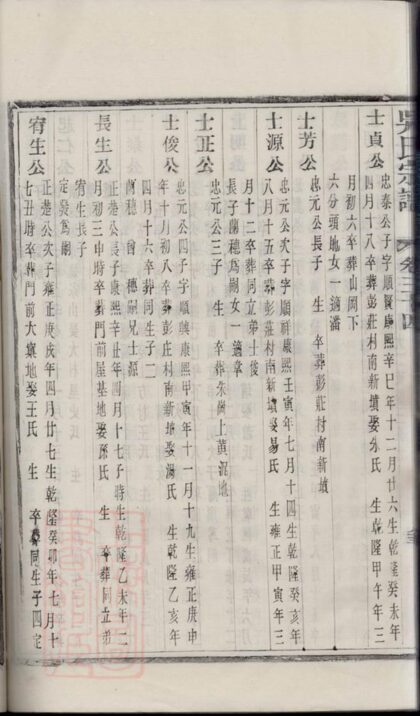 吳氏宗譜 卷三十四
士貞公 忠泰公子字順賢康熙辛巳年十二月廿六生乾隆癸未年
四月十八卒葬彭莊村南新墳娶朱氏 生乾隆甲午年三
月初六卒葬山岡下
六分頭地女一適潘
士芳公 忠元公長子 生 卒葬彭莊村南新墳
士源公 忠元公次子字順祥康熙壬寅年七月十四生乾隆癸亥年
八月十五卒葬彭莊村南新墳娶易氏 生雍正甲寅年三
月十二卒葬同立弟士俊
長子蘭穗為嗣女一適章
士正公 忠元公三子 生 卒葬朱崗上黃泥地
士俊公 忠元公四子字順興康熙甲寅年十一月十九生雍正庚申
年十月初八卒葬彭莊村南新墳娶湯氏 生乾隆乙亥年
四月十六卒葬同生子二
蘭穗 穗嗣兄士源
長生公 正楚公長子康熙辛丑年四月十七子時生乾隆乙未年二
月初三申時卒葬門前屋基地娶孫氏 生 卒葬同立弟
宥生長子
定發為嗣
宥生公 正楚公次子雍正庚戌年四月廿七生乾隆癸卯年七月十
七丑時卒葬門前大墳地娶王氏 生 卒葬同生子四定